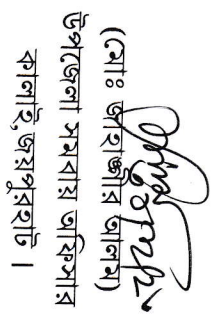 (মোঃ জাহাঙ্গীর আলম)
উপজেলা সমবায় অফিসার
কালাই, জয়পুরহাট।